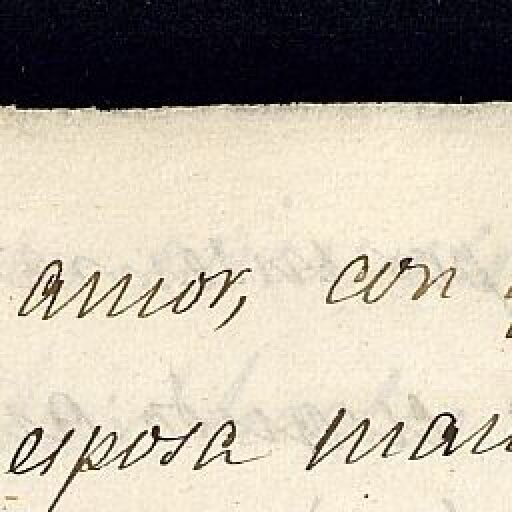 amor, con
esposa man